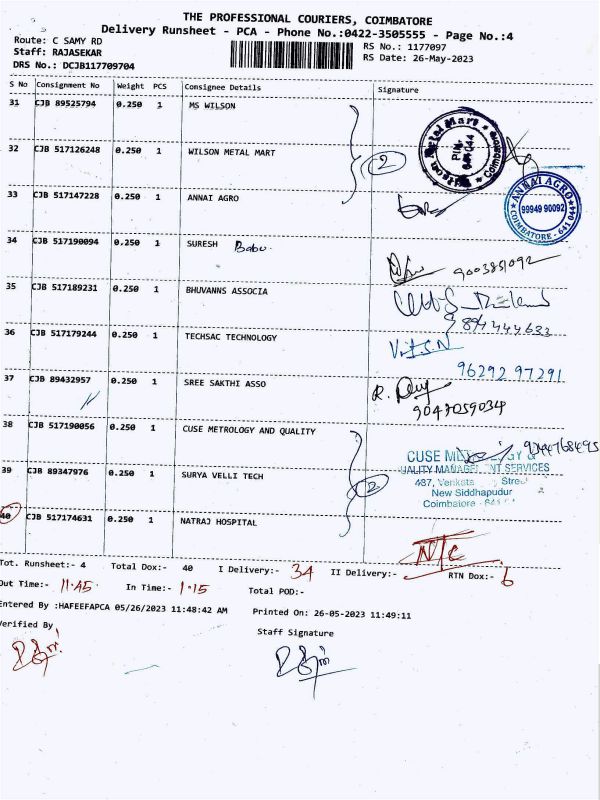 THE PROFESSIONAL COURIERS, COIMBATORE
Delivery Runsheet - PCA - Phone No.:0422-3505555 - Page No.:4
Route: C SAMY RD
RS No.: 1177097
Staff: RAJASEKAR
RS Date: 26-May-2023
DRS No.: DCJB117709704
S No Consignment No Weight PCS Consignee Details Signature
31 CJB 89525794 0.250 1 MS WILSON
32 CJB 517126248 0.250 1 WILSON METAL MART
2
Wilson Metal Mart Coimbatore
33 CJB 517147228 0.250 1 ANNAI AGRO
ANNAI AGRO
99949 90092
COIMBATORE - 641 044
34 CJB 517190094 0.250 1 SURESH Babu
9003851092
35 CJB 517189231 0.250 1 BHUVANNS ASSOCIA
36 CJB 517179244 0.250 1 TECHSAC TECHNOLOGY
96292 97291
37 CJB 89432957 0.250 1 SREE SAKTHI ASSO
9047059034
38 CJB 517190056 0.250 1 CUSE METROLOGY AND QUALITY
CUSE
39 CJB 89347976 0.250 1 SURYA VELLI TECH
2
QUALITY MANAGEMENT SERVICES
487, Venkata Street
New Siddhapudur
Coimbatore - 641
40 CJB 517174631 0.250 1 NATRAJ HOSPITAL
NTC
Tot. Runsheet:- 4 Total Dox:- 40 I Delivery:- 34 II Delivery:- RTN Dox:- 6
Out Time:- 11.45 In Time:- 1.15 Total POD:-
Entered By :HAFEEFAPCA 05/26/2023 11:48:42 AM Printed On: 26-05-2023 11:49:11
Verified By
Staff Signature